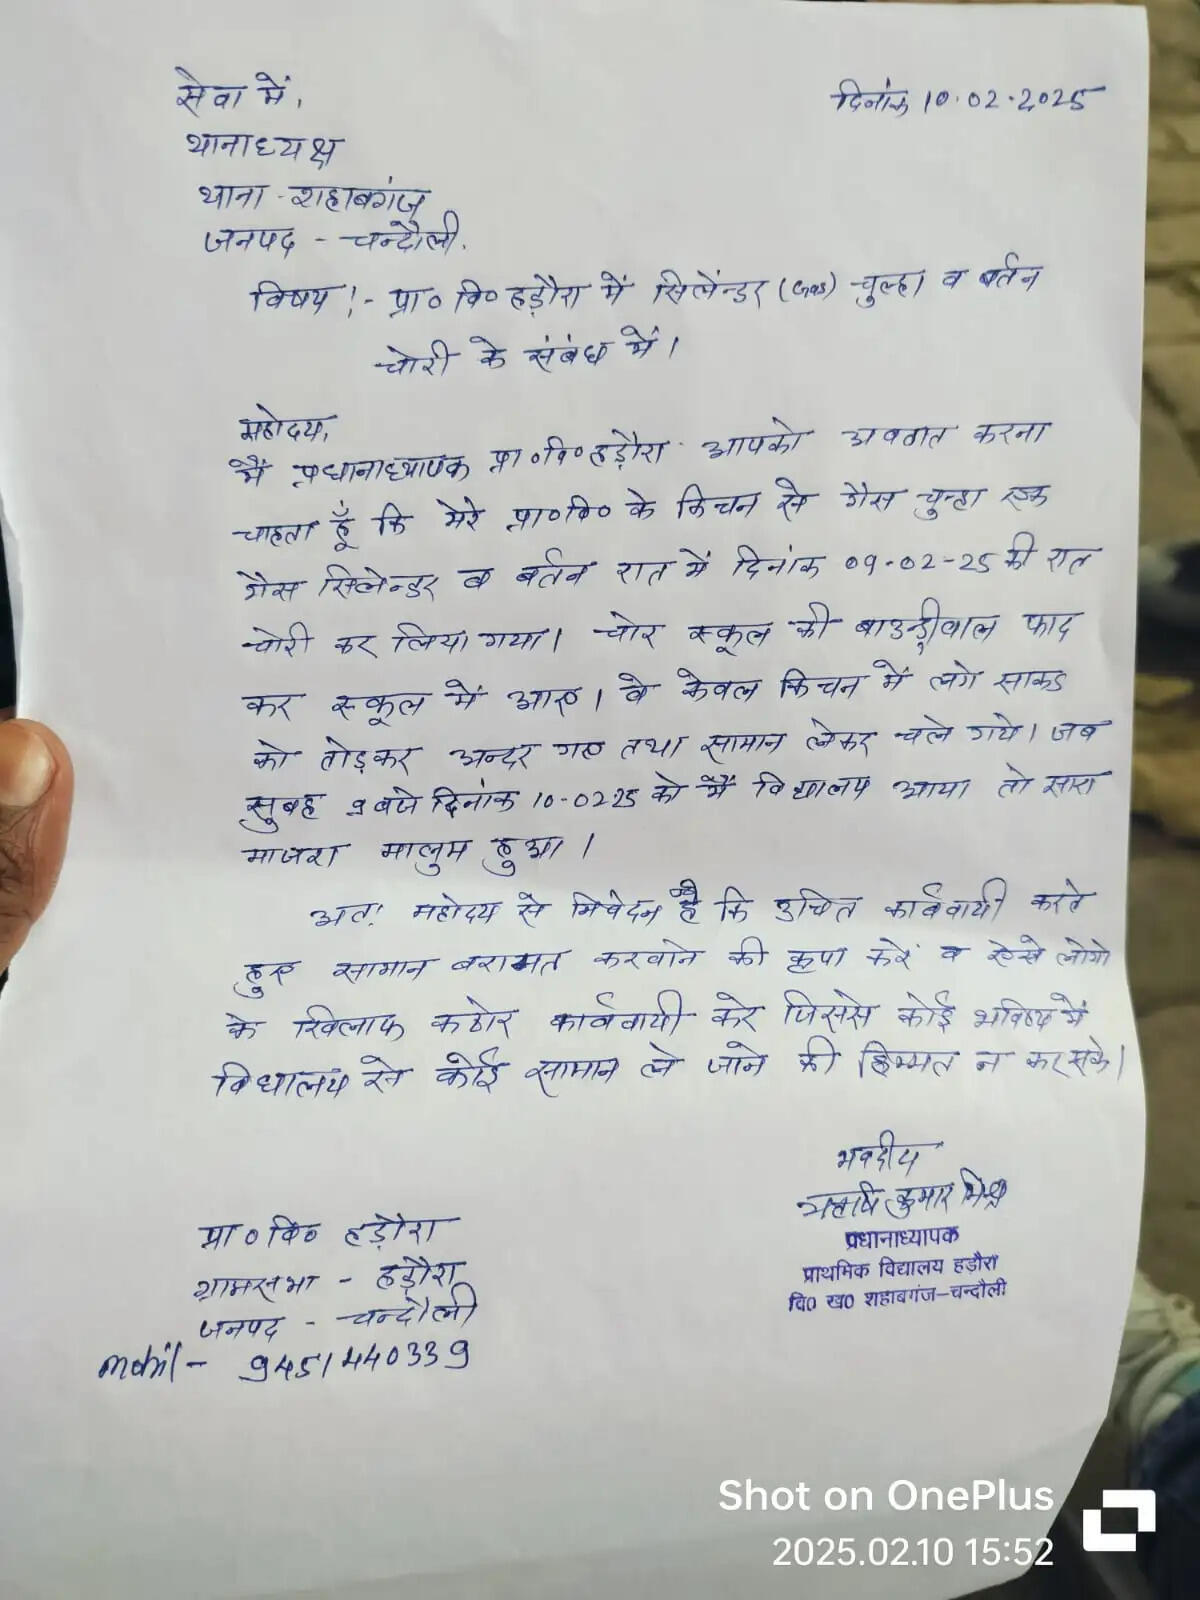 सेवा में,
दिनांक 10.02.2025
थानाध्यक्ष
थाना - शहाबगंज
जनपद - चन्दौली.
विषय !- प्रा० वि० हड़ौरा में सिलेन्डर (Gas) चुल्हा व बर्तन
चोरी के संबंध में।
महोदय,
मैं प्रधानाध्यापक प्रा०वि० हड़ौरा आपको अवगत करना
चाहता हूँ कि मेरे प्रा०वि० के किचन से गैस चुल्हा एक
गैस सिलेन्डर व बर्तन रात में दिनांक 09-02-25 की रात
चोरी कर लिया गया। चोर स्कूल की बाउन्ड्रीवाल फाद
कर स्कूल में आए। वे केवल किचन में लगे साकड
को तोड़कर अन्दर गए तथा सामान लेकर चले गये। जब
सुबह 9 बजे दिनांक 10-0225 को मैं विद्यालय आया तो सारा
माजरा मालुम हुआ।
अत: महोदय से निवेदन है कि उचित कार्ववायी करते
हुए सामान बरामत करवाने की कृपा करें व ऐसे लोगो
के खिलाफ कठोर कार्ववायी करे जिससे कोई भविष्य में
विद्यालय से कोई सामान ले जाने की हिम्मत न कर सके।
भवदीय
कुमार मिश्र
प्रधानाध्यापक
प्राथमिक विद्यालय हड़ौरा
वि0 ख0 शहाबगंज-चन्दौली
प्रा० वि० हड़ौरा
ग्रामसभा - हड़ौरा
जनपद - चन्दौली
mobil- 9451440339
Shot on OnePlus
2025.02.10 15:52